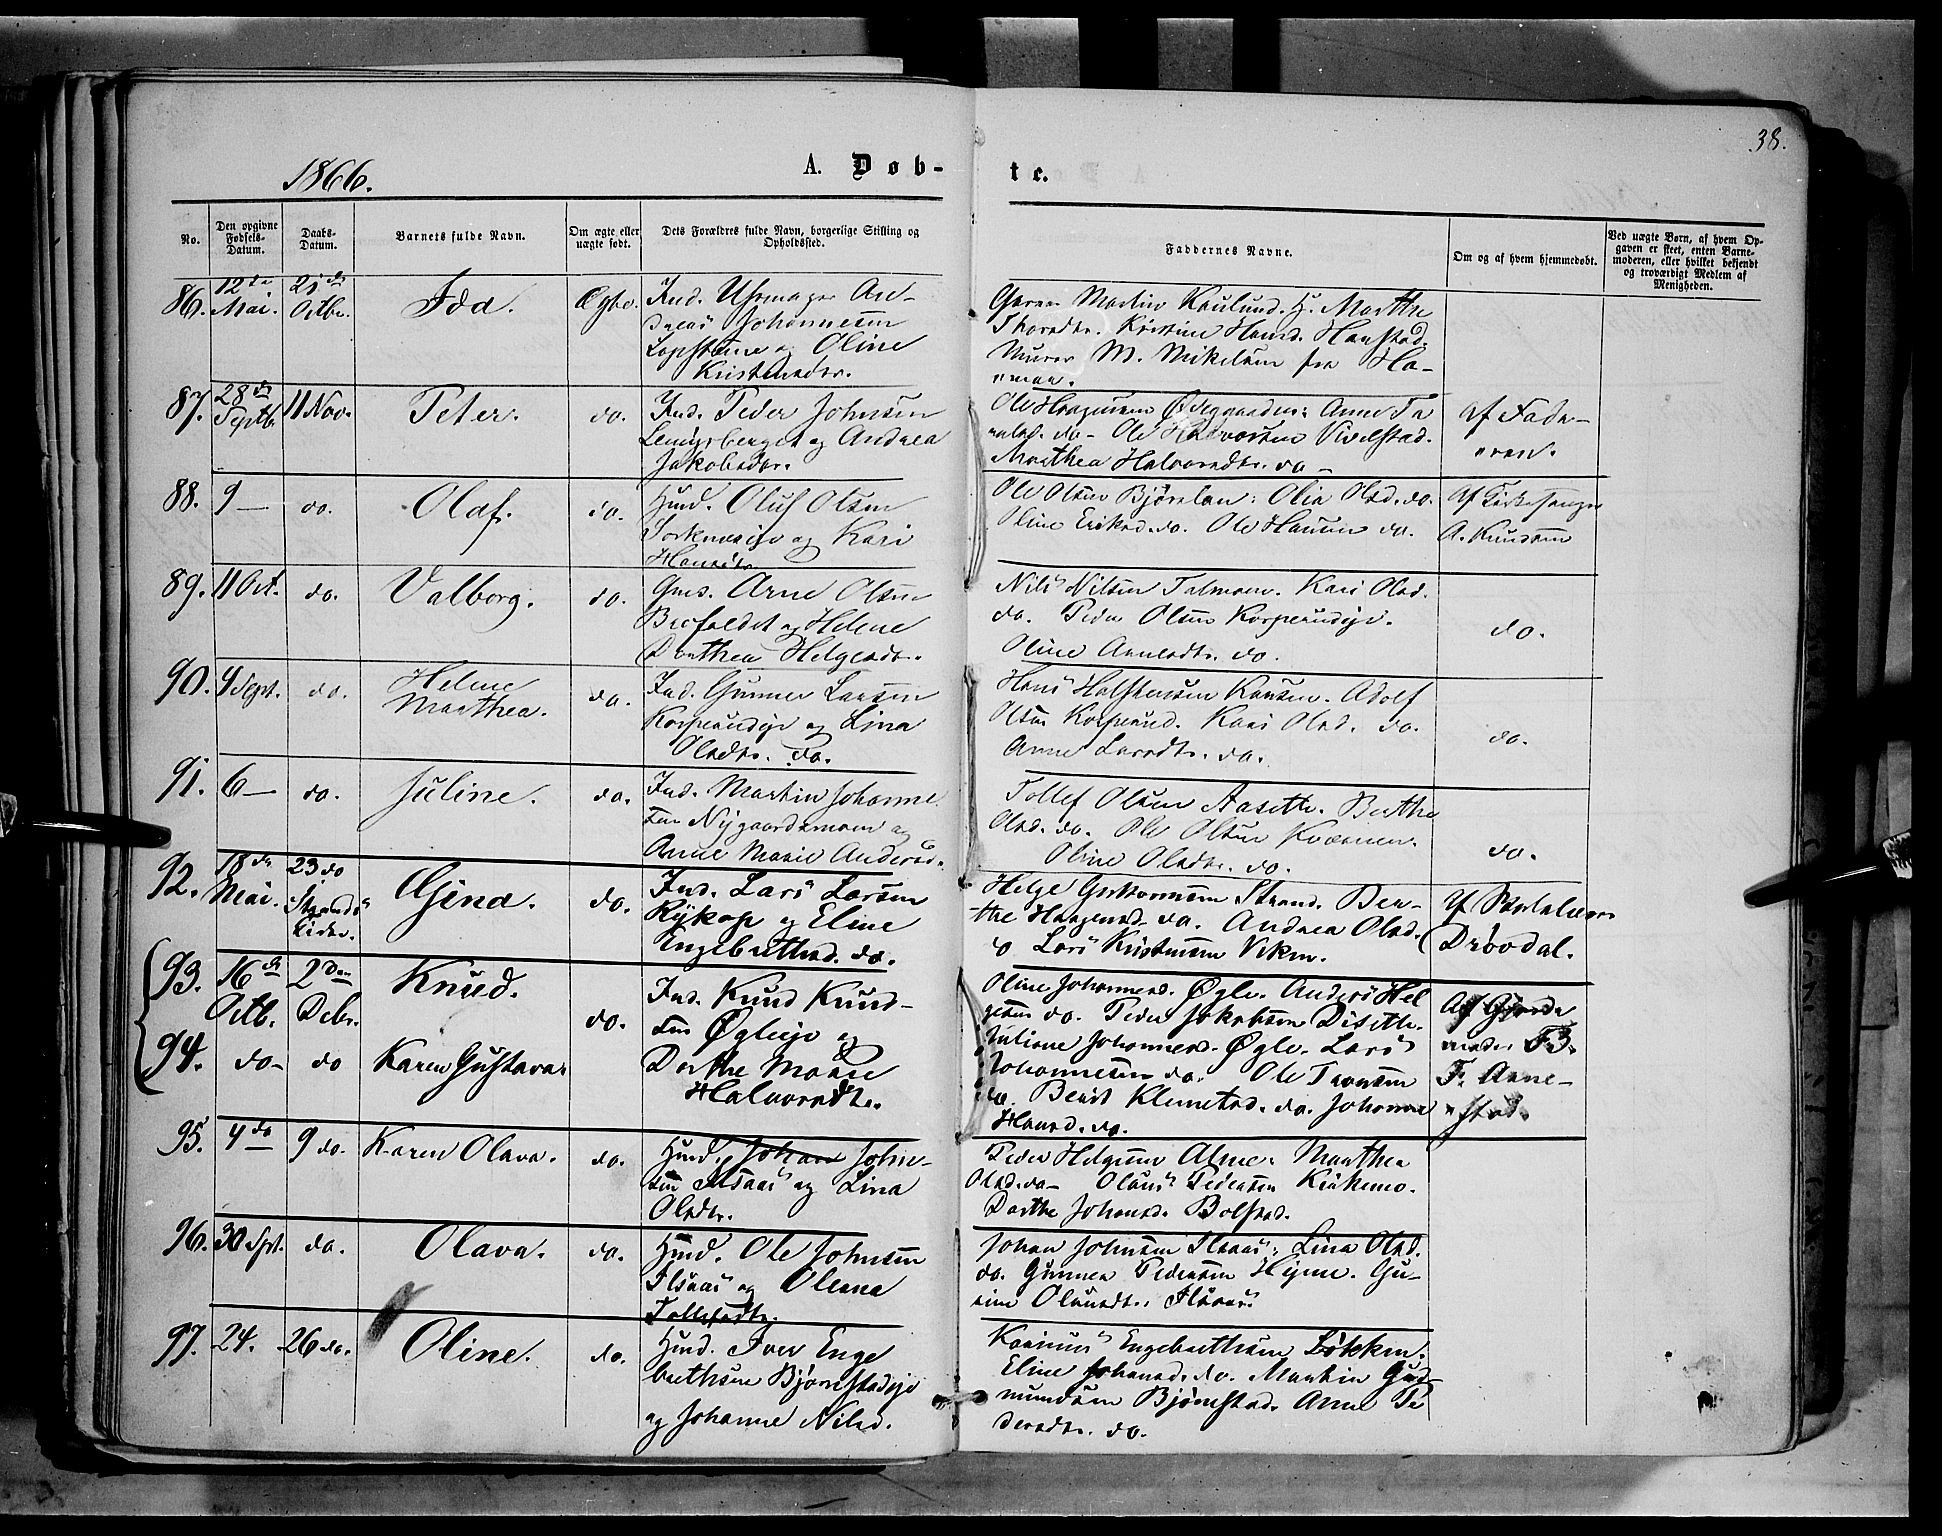 38.
1866.
A. Døb-
te.
No.
Den opgivne Fødsels-Datum.
Daabs-Datum.
Barnets fulde Navn.
Om ægte eller uægte født.
Dets Forældres fulde Navn, borgerlige Stilling og Opholdssted.
Faddernes Navne.
Om og af hvem hjemmedøbt.
Ved uægte Børn, af hvem Opgaven er skeet, enten Barnemoderen, eller hvilket bekjendt og troværdigt Medlem af Menigheden.
86. 12te Mai. 21de Octbr. Ida.
Ind. Uhrmager An-
dreas Johannesen
og Oline
Kristensdtr.
Martin H. Marthe
Thorsdtr. Kristine Hansd. Hanstad.
Murer M. Mikelsen fra Ha-
mar.
87. 28de Septb. 11 Nov. Peter. do.
Ind. Peder Johnsen
og Andrea
Jakobsdtr.
Ole Haagensen Ødegaarden: Anne
do - Ole Halvorsen
Marthea Halvorsdtr. do -
af Fade-
ren.
88. 9 - do. Olaf. do.
Husd. Oluf Olsen
og Kari
Hansdtr.
Ole Olsen Olia Olsd. do.
Oline Eriksd. do. Ole Hansen do.
Af Kirkesanger
A. Knudsen
89. 11 Oct. do. Valborg. do.
Gms. Arne Olsen
og Helene
Dorthea Helgesdtr.
Nils Nilsen Kari Olsd.
do. Peder Olsen
Oline Arnesdtr. do.
do.
90. 4 Sept. do. Helene
Marthea. do.
Ind. Gunner Larsen
og Lina
Olsdtr. do.
Hans Halstensen Adolf
Olsen Kari Olsd. do.
Anne Larsdtr. do.
do.
91. 6 - do. Juline. do.
Ind. Martin Johanne
sen og
Anne Marie Andersd.
Tollef Olsen Aaseth. Berthe
Olsd. do. Ole Olsen
Oline Olsdtr. do.
do.
92. 18de Mai. 23 do Strands
Kirke. Gina. do.
Ind. Lars Larsen
og Eline
Engebrettsd. do.
Helge Guttormsen Strand. Ber-
the Haagensd. do. Andrea Olsd.
do Lars Kristensen
Drøvdal.
93. 16de Octb. 2den Debr. Knud.
Ind. Knud Knud-
sen og
Dorthe Marie
Halvorsdtr.
do.
94. do - do Karen Gustava.
Oline Johannesd. Øgle. Anders Hel
gesen do. Peder Jakobsen Diseth.
Juliane Johannesd. Øgle. Lars
Johannesen do. Ole Iversen
do. Berit Klemetsd. do. Johanne
Hansd. do.
Af Gjorde
moder
F. Arne-
stad.
95. 4de 9 do. Karen Olava. do.
Husd. Johan John-
sen og Lina
Olsdtr.
Peder Helgesen Alme: Marthea
Olsd. do - Olaus Pedersen Kirkemo.
Dorthe Johansd. Bolstad.
96. 30 Spt. do. Olava. do.
Husd. Ole Johnsen
og Oleana
Tollefsdtr.
Johan Johnsen Lina Olsd.
do. Gunner Pedersen Gu-
rine
97. 24. 26 do. Oline. do.
Husd. Iver Enge
brethsen Bjørnstadeje
og Johanne Nilsd.
Karinus Engebrethsen Løkken.
Eline Johansd. do. Martin Gud-
mundsen Bjørnstad. Anne Pe
dersdtr. do.